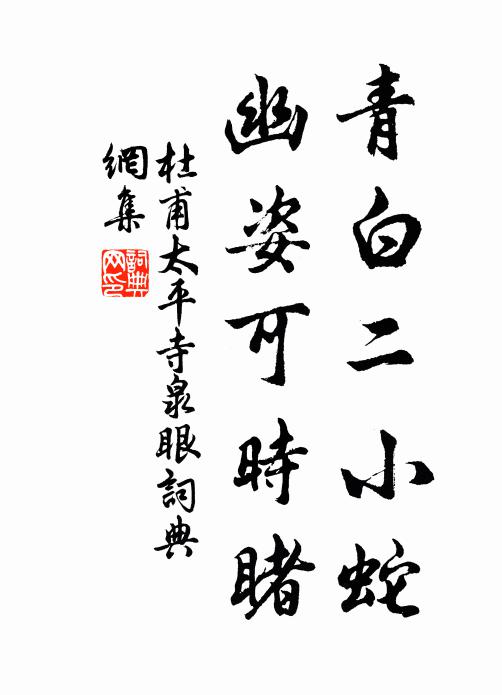 青白二小蛇
幽姿可時睹
杜甫太平寺泉眼詞典
網集
詞典
网印